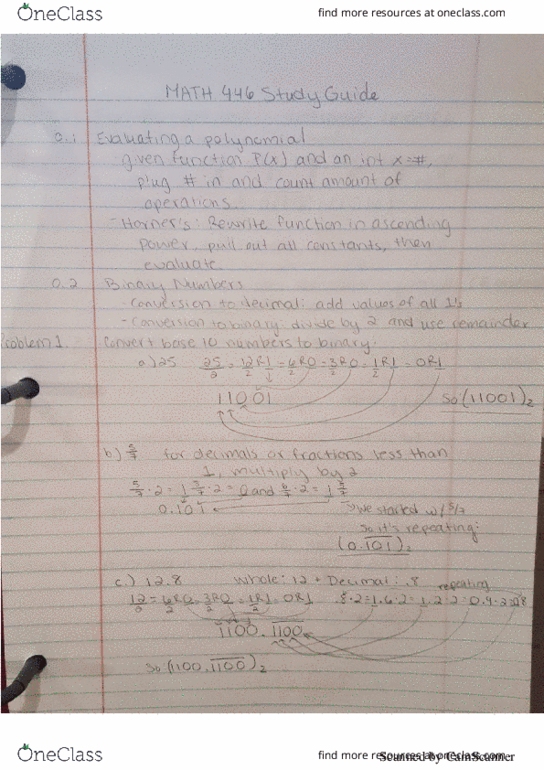 OneClass
find more resources at oneclass.com
MATH 446 Study Guide
0.1 Evaluating a polynomial
given function P(x) and an int x=#,
plug # in and count amount of
operations
- Horner's: Rewrite function in ascending
power, pull out all constants, then
evaluate
0.2 Binary Numbers
- Conversion to decimal: add values of all 1's
- Convertion to binary: divide by 2 and use remainder
roblem 1. Convert base 10 numbers to binary.
a) 25 25/2 = 12R1/2 = 6R0/2 = 3R0/2 = 1R1/2 = 0R1
11001 so (11001)2
b) 5/7 for decimals or fractions less than
1, multiply by 2
5/7·2 = 1 3/7·2 = 0 and 6/7·2 = 1 5/7
0.101 we started w/ 5/7
so it's repeating:
(0.101)2
c.) 12.8 whole: 12 + Decimal: .8 repeating
12/2 = 6R0/2 = 3R0/2 = 1R1/2 = 0R1 .8·2=1.6·2=1.2·2=0.4·2=0.8
1100.1100
so (1100.1100)2
OneClass
find more resources at oneclass.com
Scanned by CamScanner